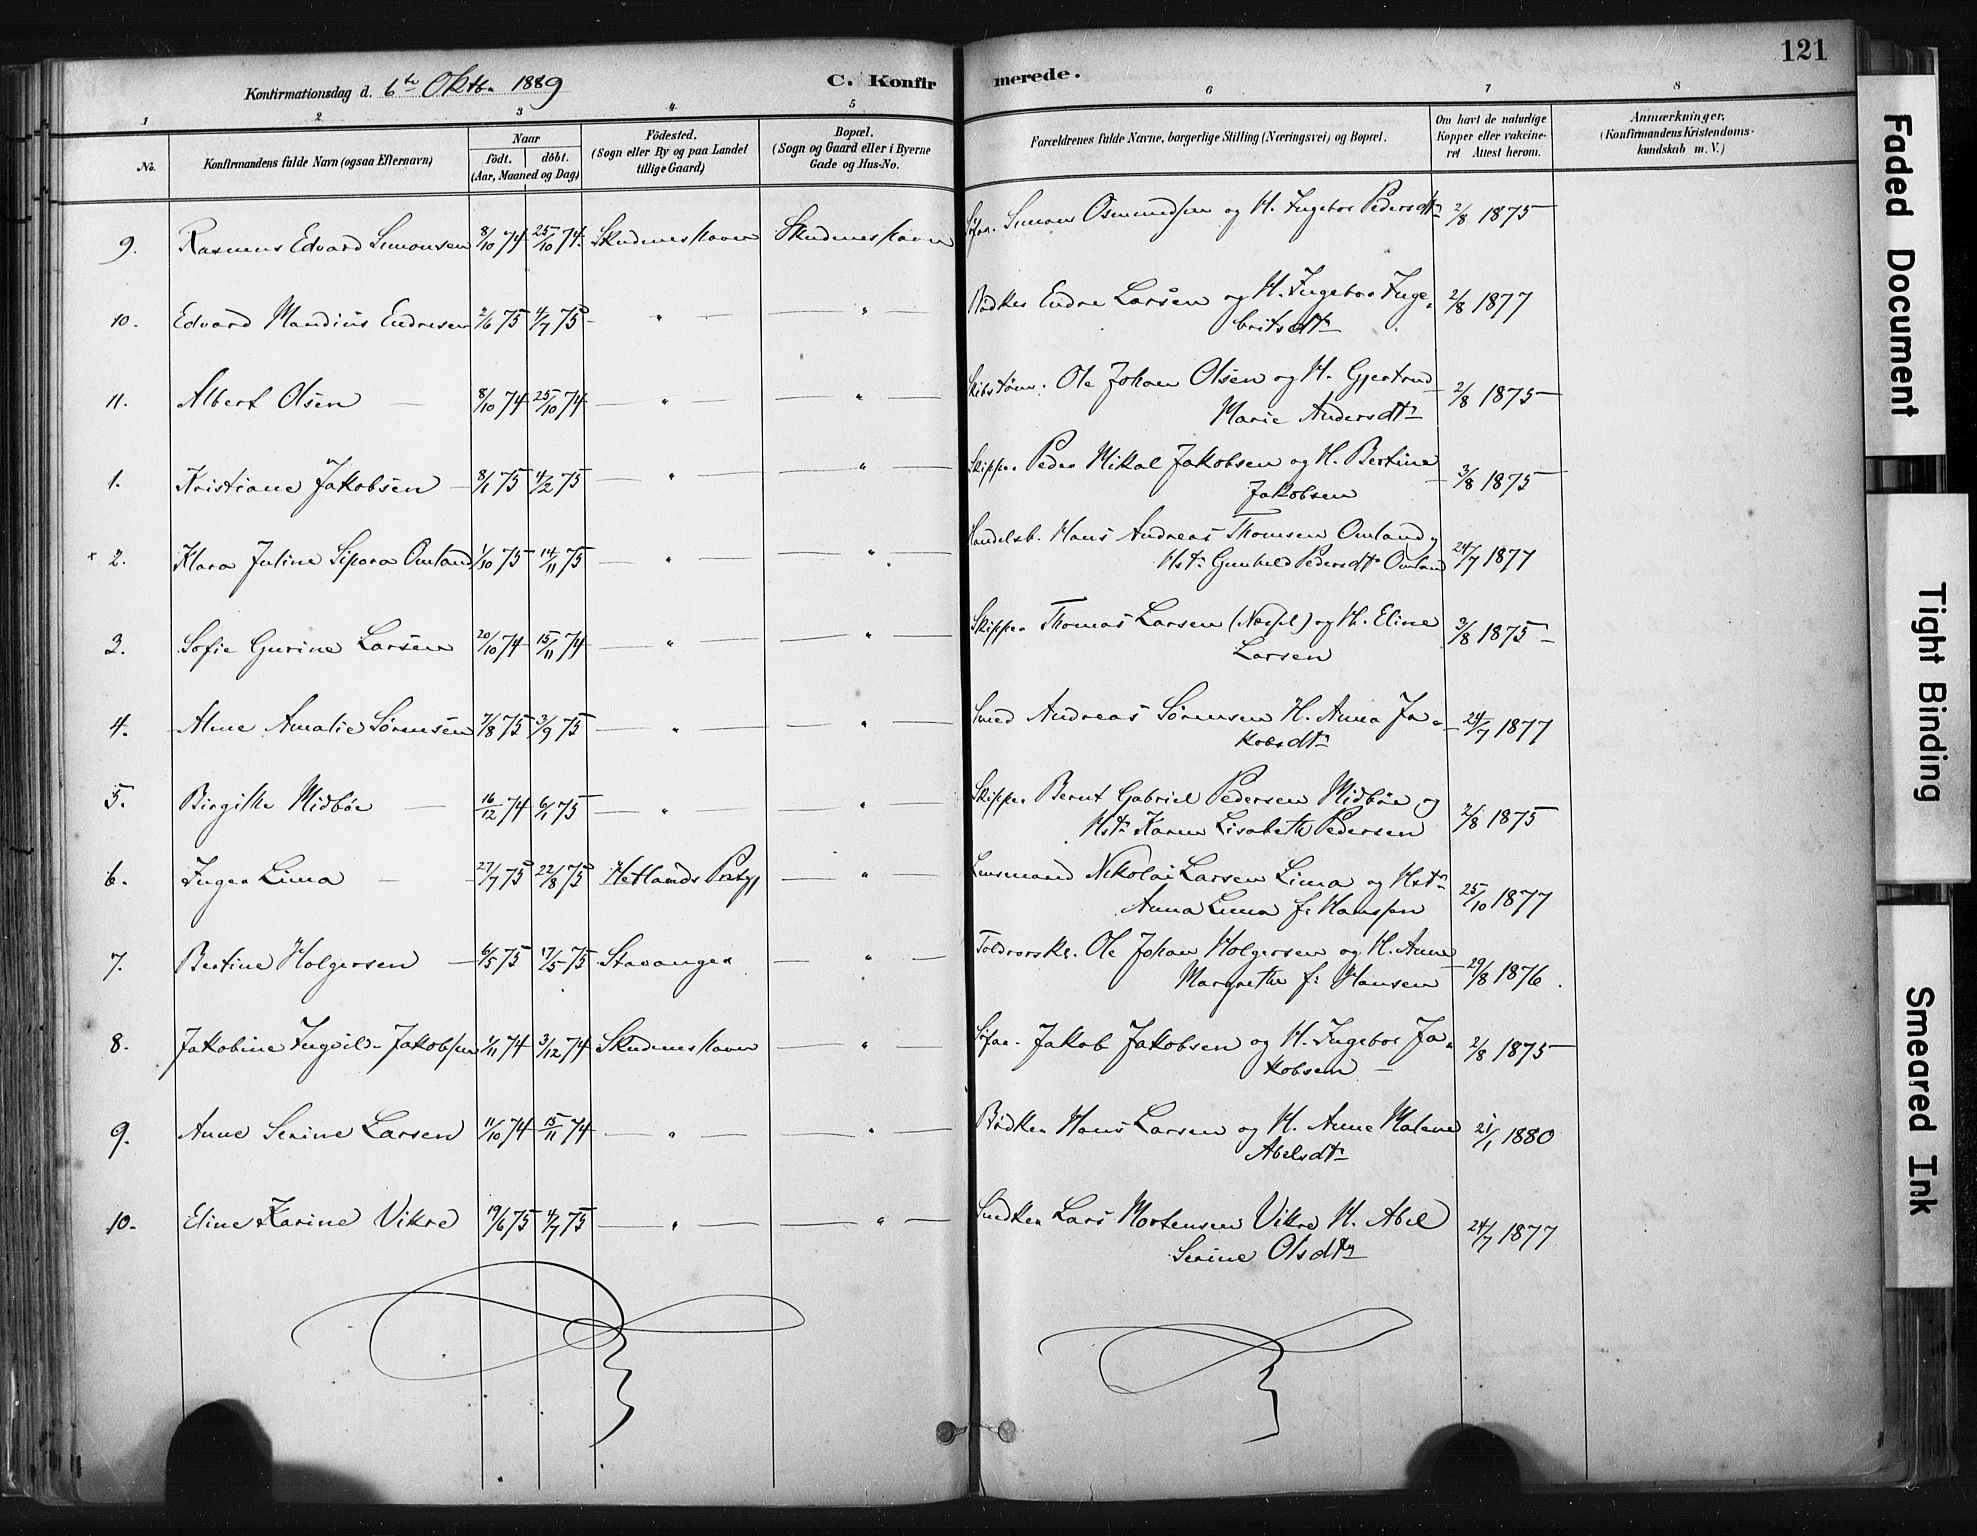 121
Konfirmationsdag d. 6te Oktbr 1889
C. Konfirmerede.
1 2 3 4 5 6 7 8
No.
Konfirmandens fulde Navn (ogsaa Efternavn)
Naar
født. døbt.
(Aar, Maaned og Dag)
Födested.
(Sogn eller By og paa Landet
tillige Gaard)
Bopæl.
(Sogn og Gaard eller i Byerne
Gade og Hus-No.
Forældrenes fulde Navne, borgerlige Stilling (Næringsvei) og Bopæl.
Om havt de naturlige
Kopper eller vakcine-
ret Attest herom.
Anmærkninger.
(Konfirmandens Kristendoms-
kundskab m. V.)
9. Rasmus Edvard Simonsen 8/10 74 25/10 74 Skudeneshavn Skudeneshavn Søfar. Simon Osmundsen og H. Ingebor Pedersdtr 2/8 1875
10. Edvard Mandius Endresen 2/6 75 4/7 75 — " — — " — Bødker Endre Larsen og H. Ingebor Inge- 2/8 1877
britsdtr
11. Albert Olsen — 8/10 74 25/10 74 — " — — " — Skibstøm. Ole Johan Olsen og H. Gjertrud 2/8 1875
Marie Andersdtr
1. Kristiane Jakobsen 8/1 75 4/2 75 — " — — " — Skipper Peder Mikal Jakobsen og H. Bertine 3/8 1875
Jakobsen
x 2. Klara Juline Sipora Omland 1/10 75 14/11 75 — " — — " — Handelsb. Hans Andreas Thomsen Omland og 24/7 1877
Hstr Gunhild Pedersdtr Omland
3. Sofie Gurine Larsen 20/10 74 15/11 74 — " — — " — Skipper Thomas Larsen () og H. Eline 3/8 1875
Larsen
4. Alme Amalie Sørensen 7/8 75 3/9 75 — " — — " — Smed Andreas Sørensen H. Anna Ja- 24/7 1877
kobsdtr
5. Birgitte Midbøe — 16/12 74 6/1 75 — " — — " — Skipper Bernt Gabriel Pedersen Midbøe og 2/8 1875
Hstr Karen Lisabeth Pedersen
6. Inger Lima — 27/7 75 22/8 75 Hetlands Prstgj — " — Lensmand Nikolai Larsen Lima og Hstr 25/10 1877
Anna Lima f: Hanssen
7. Bertine Holgersen — 6/5 75 17/5 75 Stavanger — " — Toldrorsk. Ole Johan Holgersen og H. Anne 29/8 1876.
Margrethe f: Hansen
8. Jakobine Ingvild Jakobsen 1/11 74 3/12 74 Skudeneshavn — " — Søfar. Jakob Jakobsen og H. Ingebor Ja- 2/8 1875
kobsen —
9. Anne Serine Larsen 11/10 74 15/11 74 — " — — " — Bødker Hans Larsen og H. Anne Malene 21/1 1880
Abelsdtr
10. Eline Karine Vikre 19/6 75 4/7 75 — " — — " — Snedker Lars Mortensen Vikre H. Abel 24/7 1877
Serine Olsdtr
Faded Document
Tight Binding
Smeared Ink